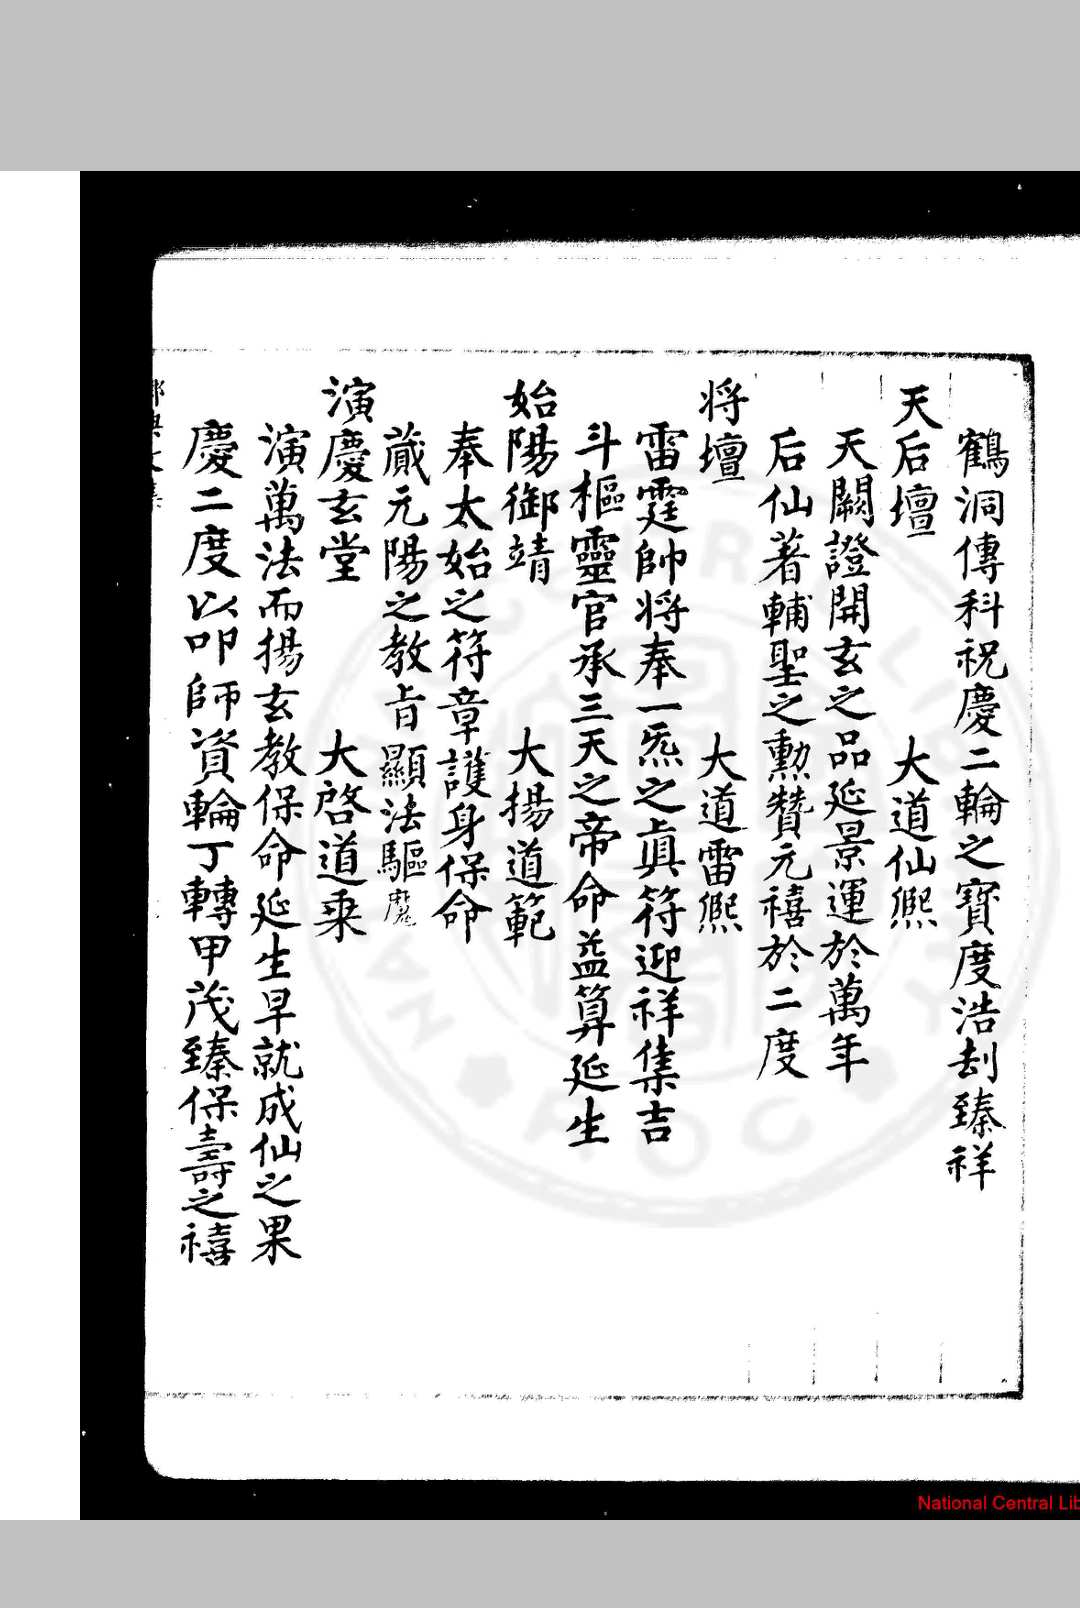 鶴洞傳科祝慶二輪之寶度浩刦臻祥
天后壇　大道仙熈
天闕證開玄之品延景運於萬年
后仙著輔聖之勲贊元禧於二度
将壇　大道雷熈
雷霆帥将奉一炁之眞符迎祥集吉
斗樞靈官承三天之帝命益算延生
始陽御靖　大揚道範
奉太始之符章護身保命
蕆元陽之教旨顯法驅魔
演慶玄堂　大啓道乗
演萬法而揚玄教保命延生早就成仙之果
慶二度以叩師資輪丁轉甲茂臻保壽之禧
National Central Lib